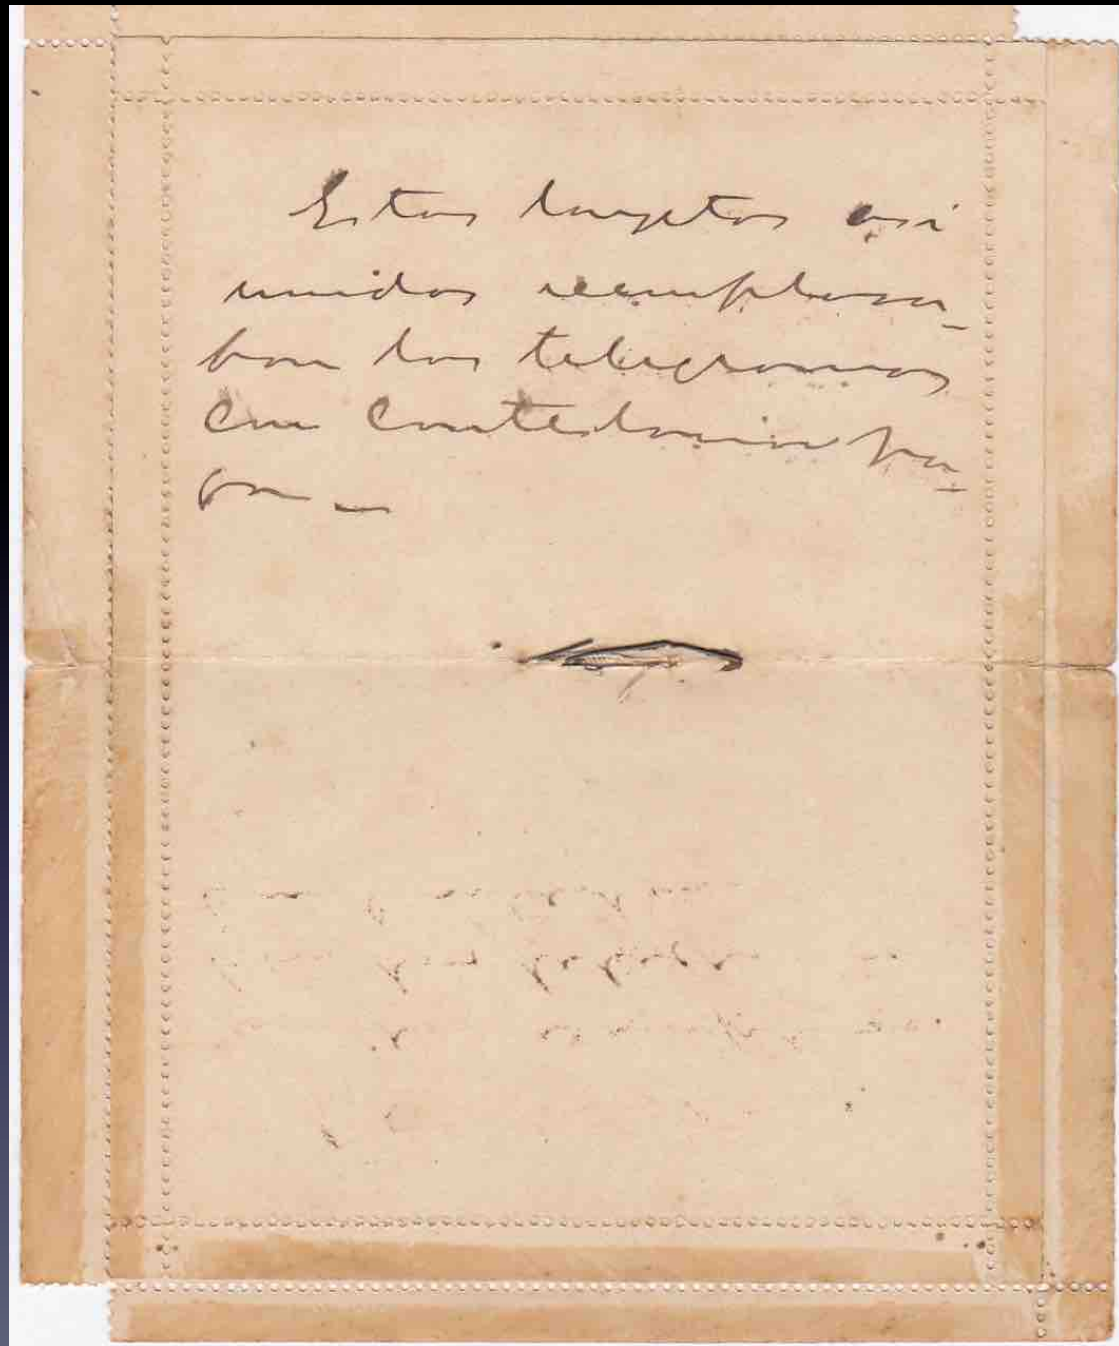 Estas tarjetas asi
unidas reemplasa-
ban los telegramas
con contestacion pa-
ga —